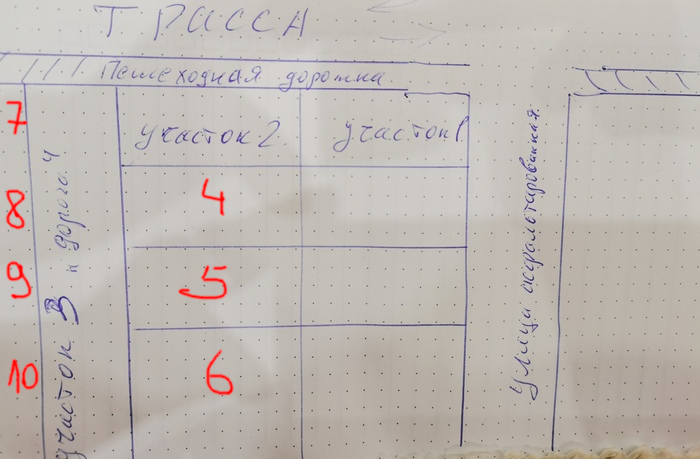 ТРАССА
Пешеходная дорожка
7
участок 2
участок 1
8
4
9
5
10
6
участок 3 и дорога 4
Улица асфальтированная